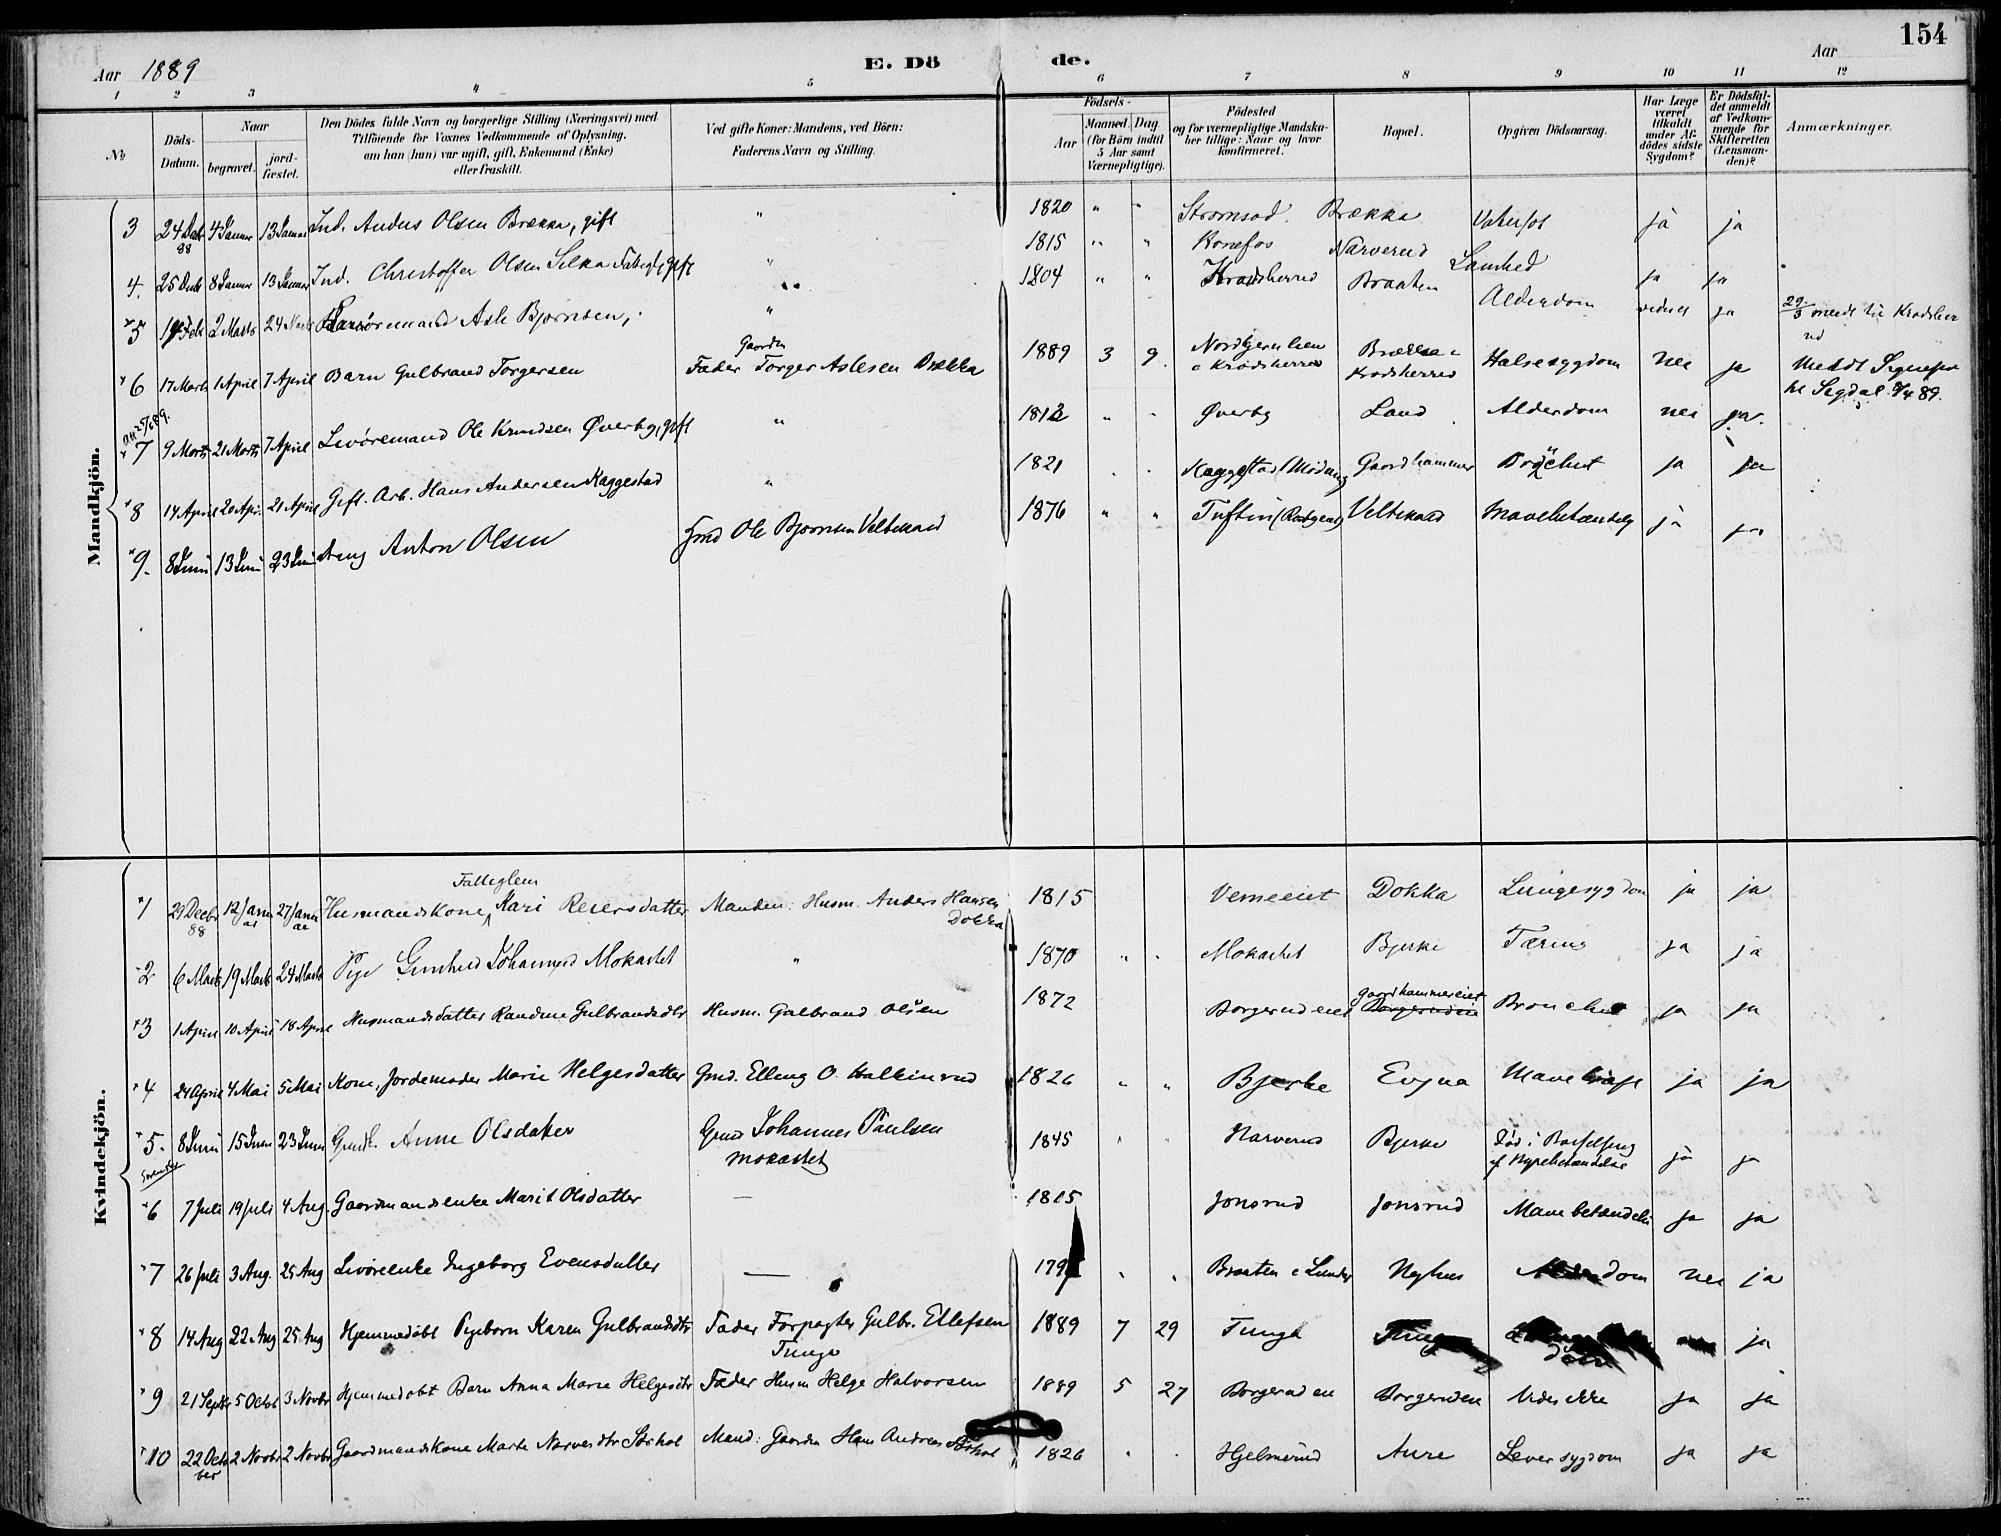 154
Aar 1889
E. Döde.
Aar
1 2 3 4 5 6 7 8 9 10 11 12
№
Döds-Datum.
Naar
begravet.
jordfæstet.
Den Dödes fulde Navn og borgerlige Stilling (Næringsvei) med
Tilföiende for Voxnes Vedkommende af Oplysning,
om han (hun) var ugift, gift, Enkemand (Enke)
eller fraskilt.
Ved gifte Koner: Mandens, ved Börn:
Faderens Navn og Stilling.
Födsels-
Aar
Maaned. Dag
(for Börn indtil
5 Aar samt
Værnepligtige).
Födested
og for værnepligtige Mandskaber tillige: Naar og hvor konfirmeret.
Bopæl.
Opgiven Dödsaarsag.
Har Læge været tilkaldt under Afdödes sidste Sygdom?
Er Dödsfaldet anmeldt af Vedkommende for Skifteretten (Lensmanden)?
Anmærkninger.
Mandkjön.
3 24 Decb 88 4 Januar 13 Januar Ind. Anders Olsen Brække, gift " 1820 " " Stromsod. Brækka Vatersot ja ja
4. 25 Decb 8 Januar 13 Januar Ind. Christoffer Olsen Fattigl, gift " 1815 " " Honefos Narverud Lamhed ja ja
5 2 Marts 24 Marts Asle Bjørnsen, " 1804 " " Kradsherred Braaten Alderdom ja 29/3 meldt til Kradsherred
6 17 Marts 1 April 7 April Barn Gulbrand Torgersen Fader Gaardm Torger Aslesen Brækka 1889 3 9. i Krødsherred Brækka i Krødsherred Halsesygdom nei ja Meldt Sognepr til Sigdal 8/4 89.
7 9 Marts 21 Marts 7 April Levøremand Ole Knudsen Øverby, gift " 1812 " " Øverby Land Alderdom nei ja.
8 14 April 20 Apr. 21 April Gift. Arb. Hans Andersen Kaggestad " 1821 " " Kaggestad (Modum) Gaardhammer ja ja
9. 8 Juni 13 Juni 23 Juni Anton Olsen Grmd Ole Bjørnsen Veltekaad 1876 " " Tuftin Veltekaad Mavebetændelse ja ja
Kvindekjön.
1 29 Decbr 88 12 Januar 27 Januar Husmandskone, Fattiglem Kari Reiersdatter Manden: Husm. Anders Hansen Dokka 1815 Vemeeiet Dokka Lungesygdom ja ja
2 6 Marts 19 Marts 24 Marts Pige Gunhild Johannesd Mokastet " 1870 " " Mokastet Bjerke Tæring ja ja
3 1 April 10 April 18 April Husmandsdatter Randine Gulbrandsdtr Husm. Gulbrand Olsen 1872 Borgerudeiet Gaardhammereiet Bronchit ja ja
4 24 April 4 Mai 5 Mai Kone, Jordemoder Marie Helgesdatter Grmd. Elling O. Kolkinrud 1826 " " Bjerke Evjua Mavekræft ja ja
5. 8 Juni 15 Juni 23 Juni Anne Olsdatter Grmd Johannes Paulsen Mokastet 1845 " " Narverud Bjerke Død i Barselseng af Nyrebetændelse ja ja
6 7 Juli 19 Juli 4 Aug. Gaardmandsenke Marit Olsdatter — 1815 Jonsrud Jonsrud Mavebetændelse ja ja
7 26 Juli 3 Aug. 25 Aug Levøreenke Ingeborg Evensdatter — " " Braaten i Lunder Nyhus Alderdom nei ja
8 14 Aug 22 Aug 25 Aug Hjemmedøbt Pigebarn Karen Gulbrandsdtr Fader Forpagter Gulbr. Ellefsen Tunge 1889 7 29 Tunga Tunga ja
9 21 Septbr 5 Octob 3 Novbr Hjemmedøbt Barn Anna Marie Helgesdtr Fader Husm Helge Halvorsen 1889 5 27 Borgeruden Borgeruden Vides ikke ja ja
10 22 October 2 Novbr 2 Novbr Gaardmandskone Marte Narvesdtr Mand: Gaardm Hans Andreas 1826 " " Hjelmerud Aure Leversygdom ja ja